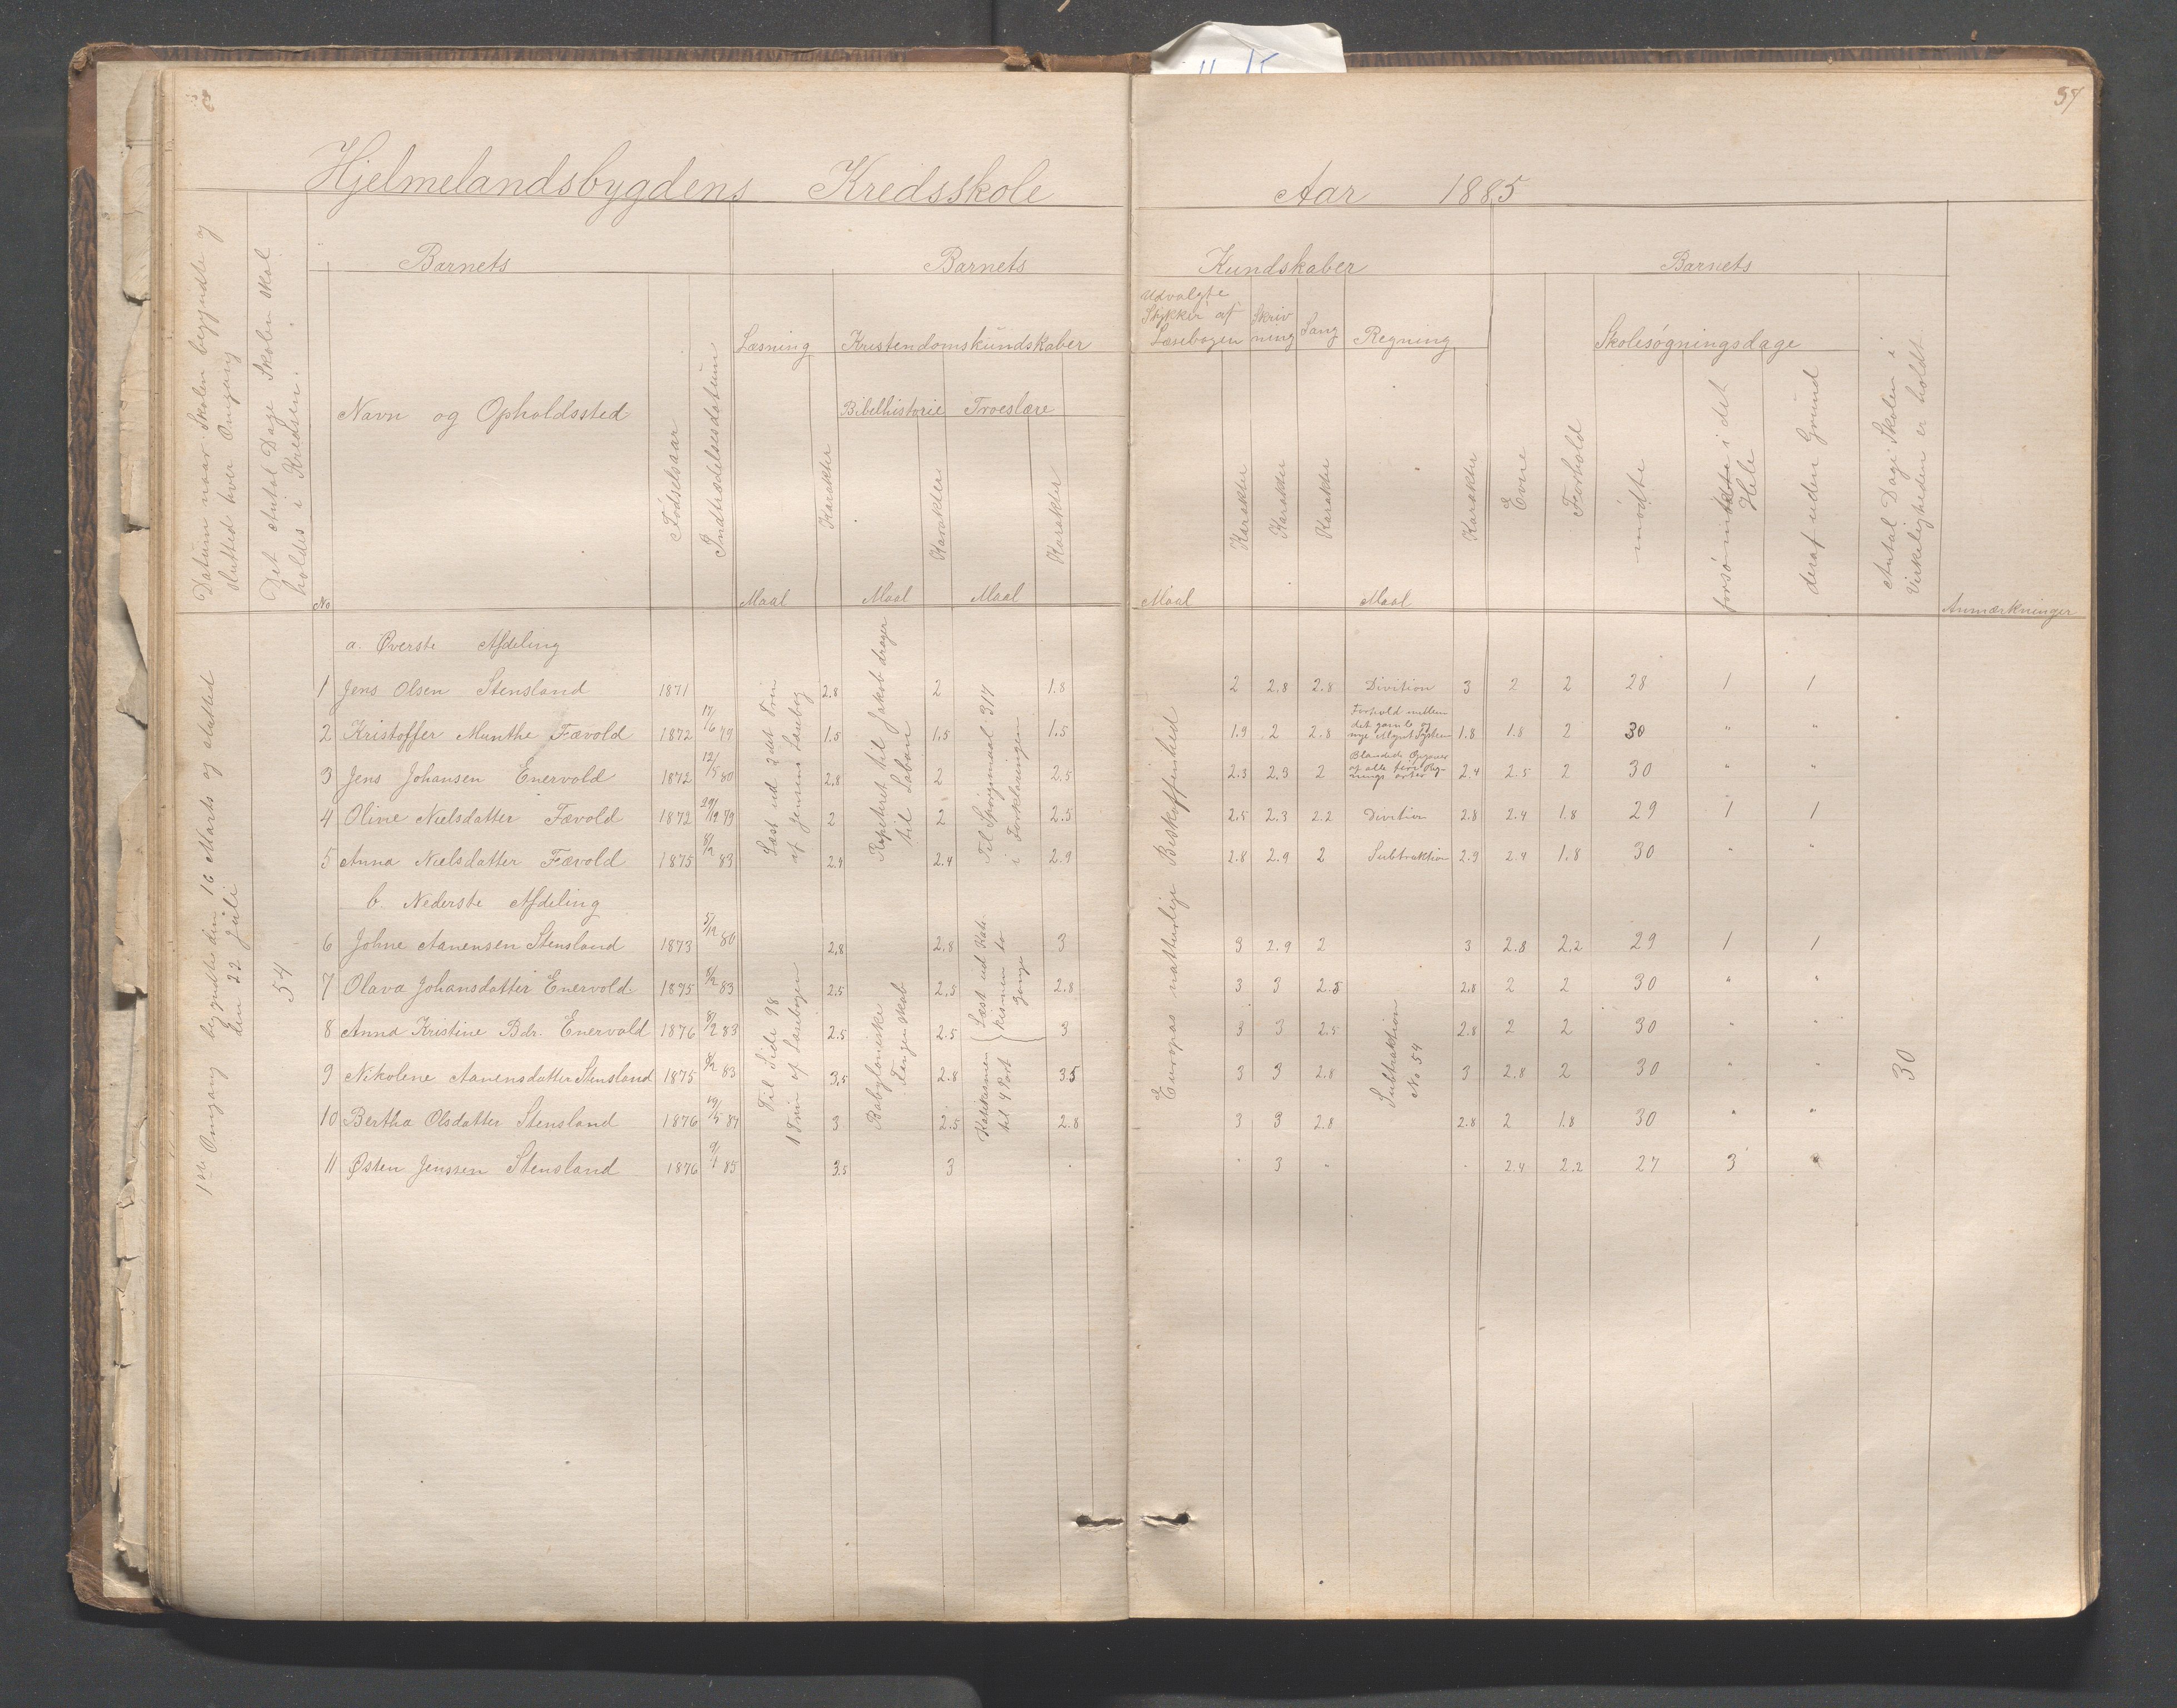 37
Hjelmelandsbygdens Kredsskole Aar 1885
Datum naar Skolen begyndte og
slutted hver Omgang
Det Antal Dage Skolen skal
holdes i Kredsen.
Barnets
No
Navn og Opholdssted
Fødselsaar
Indtrædelsesdatum
Barnets Kundskaber
Læsning
Maal
Karakter
Kristendomskundskaber
Bibelhistorie
Maal
Karakter
Troeslære
Maal
Karakter
Udvalgte
Stykker af
Læsebogen
Maal
Karakter
Skriv
ning
Karakter
Sang
Karakter
Regning
Maal
Karakter
Barnets
Evne
Forhold
Skolesøgningsdage
mødte
forsømte i det
Hele
deraf uden Grund
Antal Dage Skolen i
Virkeligheden er holdt
Anmærkninger
1ste Omgang begyndte den 16 Marts og slutted
den 22 Juli
54
a. Øverste Afdeling
Læst ud 2det Trin
af Jensens Læsebog
Repeteret til Jakob drager
til Laban
Til Spørgsmaal 314
i Forklaringen
Europas naturlige Beskaffenhed
1 Jens Olsen Stensland 1871 2.8 2 1.8 2 2.8 2.8 Division 3 2 2 28 1 1
2 Kristoffer Munthe Fævold 1872 17/6 79 1.5 1.5 1.5 1.9 2 2.8 Forhold mellem
det gamle og
nye Mynt System 1.8 1.8 2 30 " "
3 Jens Johansen Enervold 1872 12/5 80 2.8 2 2.5 2.3 2.3 2 Blandede Opgaver
af alle fire Reg-
nings arter 2.4 2.5 2 30 " "
4 Oline Nielsdatter Fævold 1872 29/12 79 2 2 2.5 2.5 2.3 2.2 Division 2.8 2.4 1.8 29 1 1
5 Anna Nielsdatter Fævold 1875 8/2 83 2.4 2.4 2.9 2.8 2.9 2 Subtraktion 2.9 2.4 1.8 30 " "
b. Nederste Afdeling
Til Side 98
1 Trin af Læsebogen
Babyloniske
Fangenskab
Læst ud Kate
kismen to
gange
Katekismen
til 4 Part
Subtraktion
No 54
6 Johne Aanensen Stensland 1873 5/12 80 2.8 2.8 3 3 2.9 2 3 2.8 2.2 29 1 1
7 Olava Johansdatter Enervold 1875 8/2 83 2.5 2.5 2.8 3 3 2.8 2.8 2 2 30 " "
8 Anna Kristine Bdr. Enervold 1876 8/2 83 2.5 2.5 3 3 3 2.5 2.8 2 2 30 " "
9 Nikolene Aanensdatter Stensland 1875 83 3.5 2.8 3.5 3 3 2.8 3 2.8 2 30 " " 30
10 Bertha Olsdatter Stensland 1876 19/5 84 3 2.5 2.8 3 3 2.8 2.8 2 1.8 30 " "
11 Østen Jenssen Stensland 1876 9/1 85 3.5 3 . " 3 " . 2.4 2.2 27 3